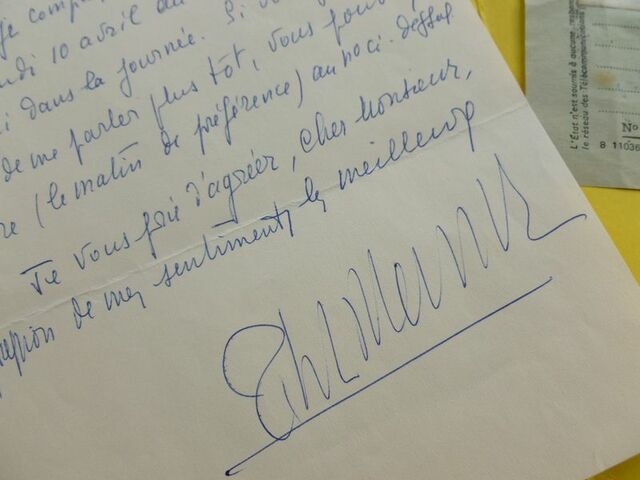 je comp
di 10 avril
i dans la journée. Si
de me parler plus tôt, vous
re (le matin de préférence) au no ci-dessus.
Je vous prie d'agréer, Cher Monsieur,
de mes sentiments les meilleurs
L'État n'est soumis à aucune
le réseau des Télécommunications
No
8 11036